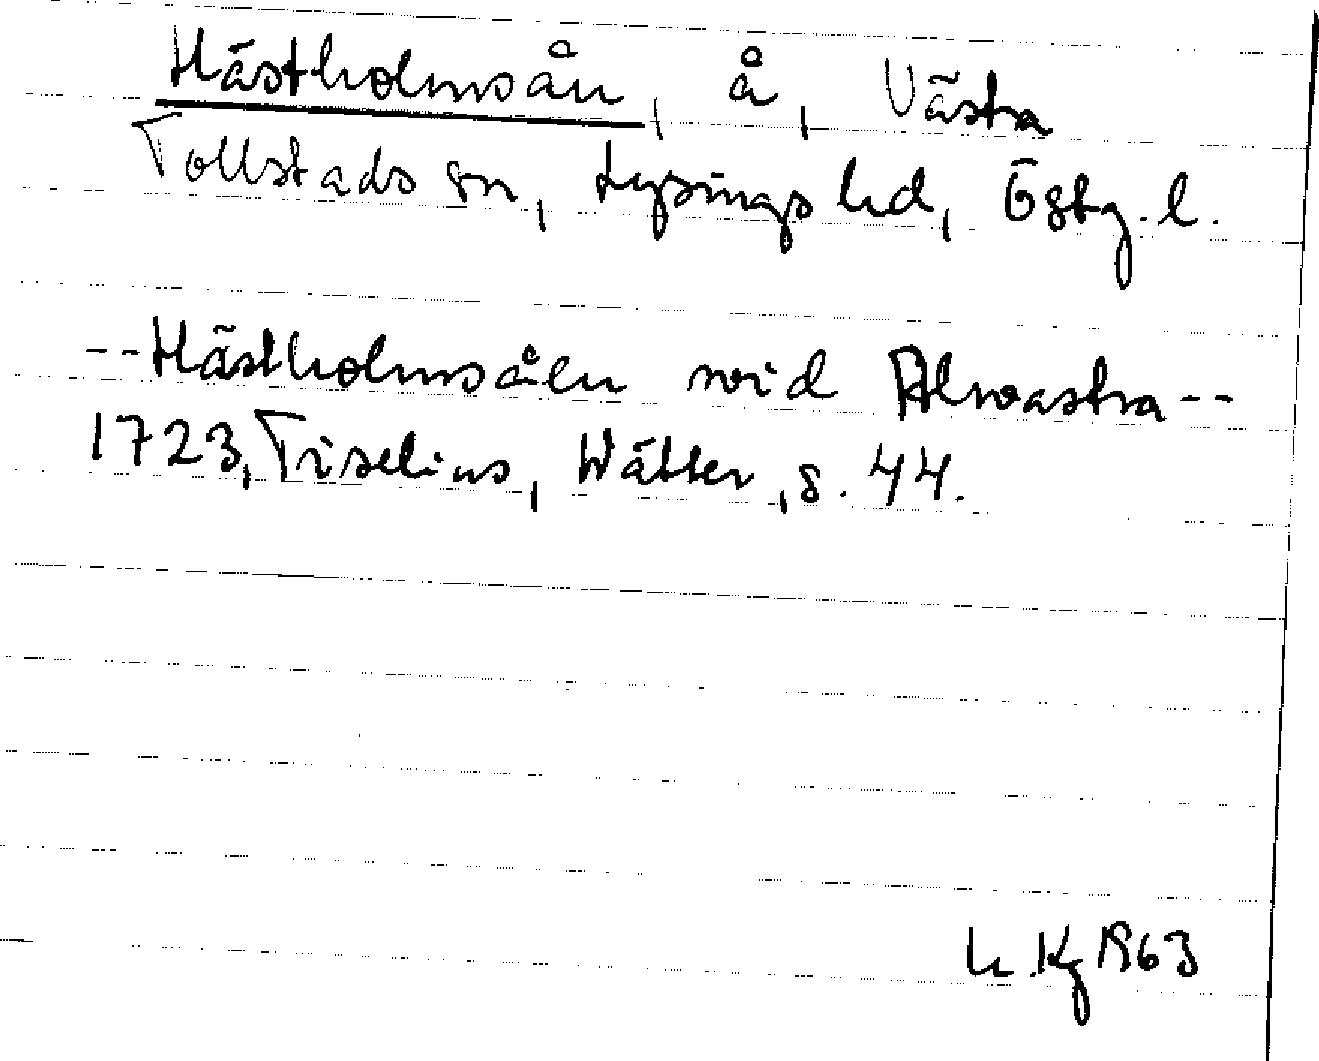 Hästholmsån, å, Västra
Tollstads sn, Lysings hd, Östg. l.
--Hästholmsåen wid Alwastra--
1723, Tiselius, Wätter, s. 44.
1963